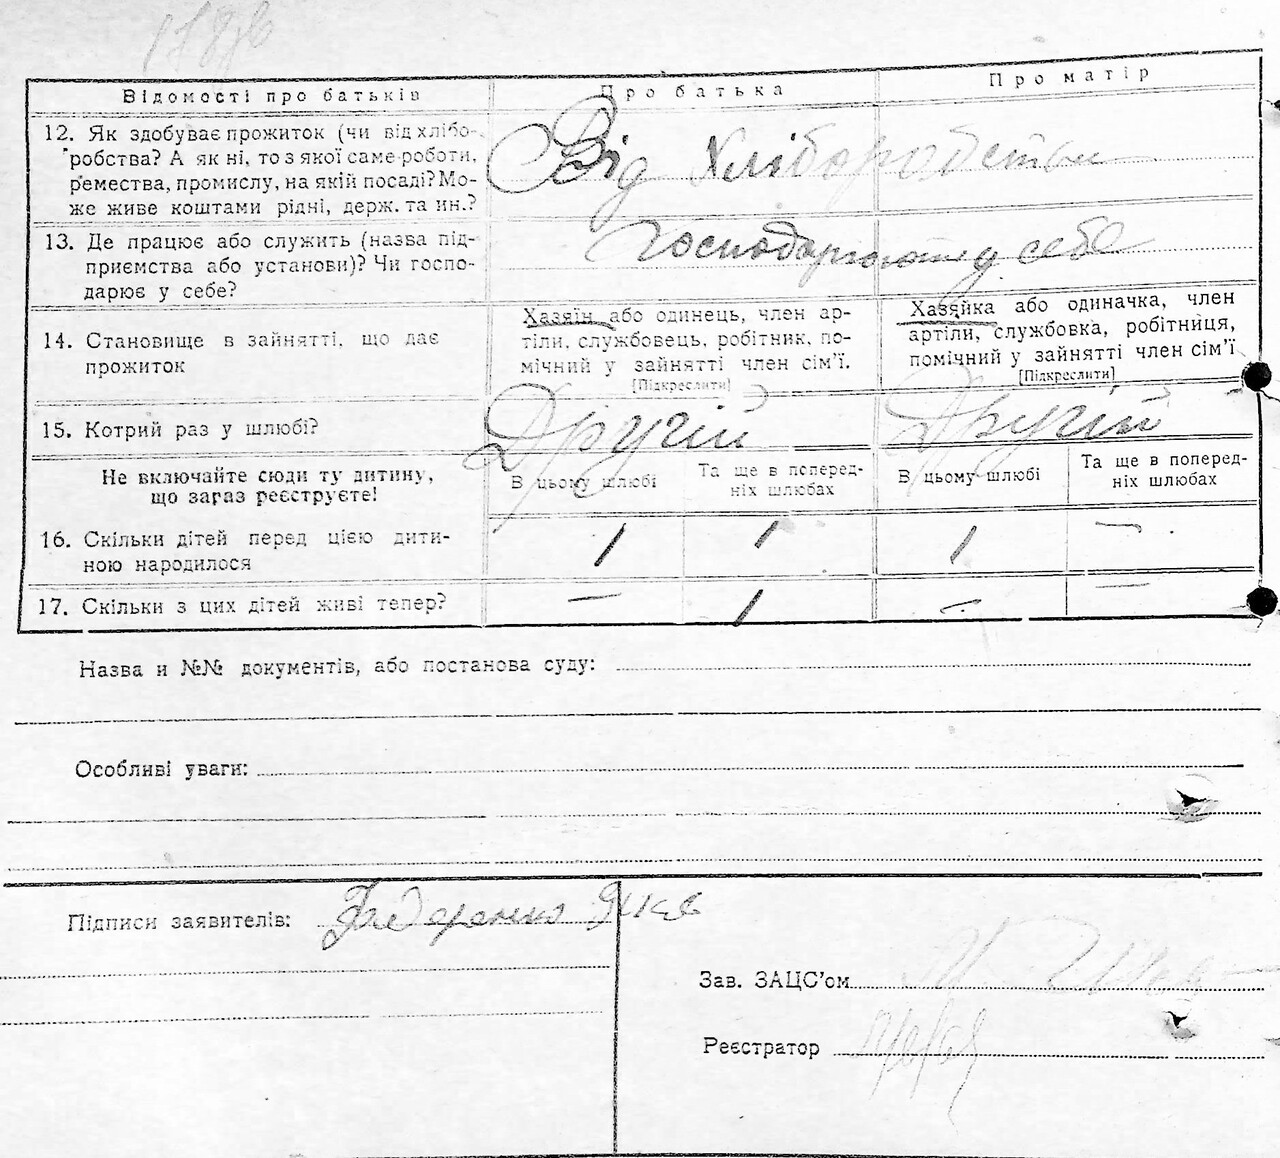 Відомості про батьків Про батька Про матір
12. Як здобуває прожиток (чи від хлібо-
робства? А як ні, то з якої саме роботи,
ремества, промислу, на якій посаді? Мо-
же живе коштами рідні, держ. та ин.?
Від хліборобства
13. Де працює або служить (назва під-
приємства або установи)? Чи госпо-
дарює у себе?
Господарюють у себе
14. Становище в зайнятті, що дає
прожиток
Хазяїн або одинець, член ар-
тілі, службовець, робітник, по-
мічний у зайнятті член сім'ї.
[Підкреслити]
Хазяйка або одиначка, член
артілі, службовка, робітниця,
помічний у зайнятті член сім'ї
[Підкреслити]
15. Котрий раз у шлюбі? Другій Другій
Не включайте сюди ту дитину,
що зараз реєструєте!
В цьому шлюбі
Та ще в поперед-
ніх шлюбах
В цьому шлюбі
Та ще в поперед-
ніх шлюбах
16. Скільки дітей перед цією дити-
ною народилося
1 1 1 —
17. Скільки з цих дітей живі тепер? — 1 — —
Назва и №№ документів, або постанова суду:
Особливі уваги:
Підписи заявителів: Федоренко Яков
Зав. ЗАЦС'ом
Реєстратор